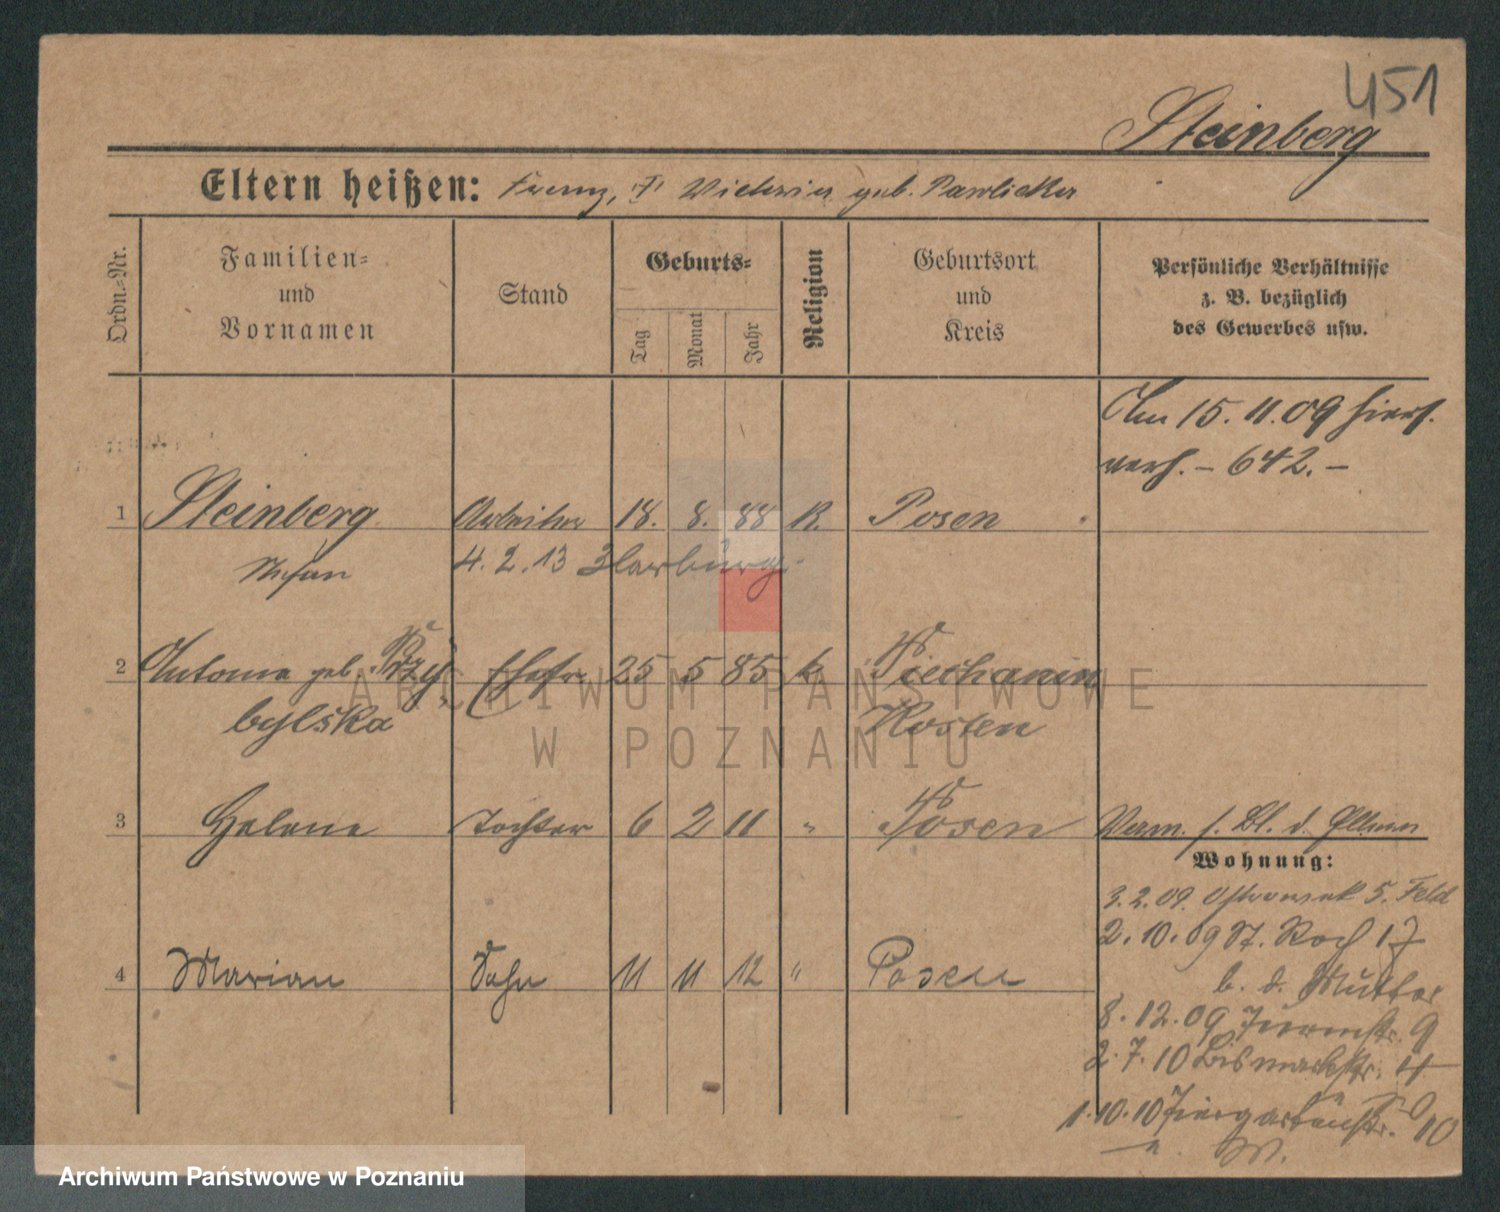 451
Steinberg
Eltern heißen: Franz, Victoria geb. Pawlicka
Ordn.-Nr.
Familien-
und
Vornamen
Stand
Geburts-
Tag
Monat
Jahr
Religion
Geburtsort
und
Kreis
Persönliche Verhältnisse
z. B. bezüglich
des Gewerbes usw.
Am 15.11.09 hiers.
verh. – 642. –
1 Steinberg Arbeiter 18. 8. 88 K. Posen
Stefan 4. 2. 13 Harburg
2 Antonie geb. Przy- Ehefr. 25 5 85 k. Piechanin
bylska Kosten
3 Helene Tochter 6 2 11 " Posen
Verm. f. Bl. d.
Wohnung:
3.2.09. 5. Feld
2.10.09 St. Roch 17
b. d. Mutter
4 Marian Sohn 11 11 12 " Posen
8.12.09 9
2.7.10 Bismarckstr. 4
1.10.10 Tiergartenstr. 10
ARCHIWUM PAŃSTWOWE
W POZNANIU
Archiwum Państwowe w Poznaniu